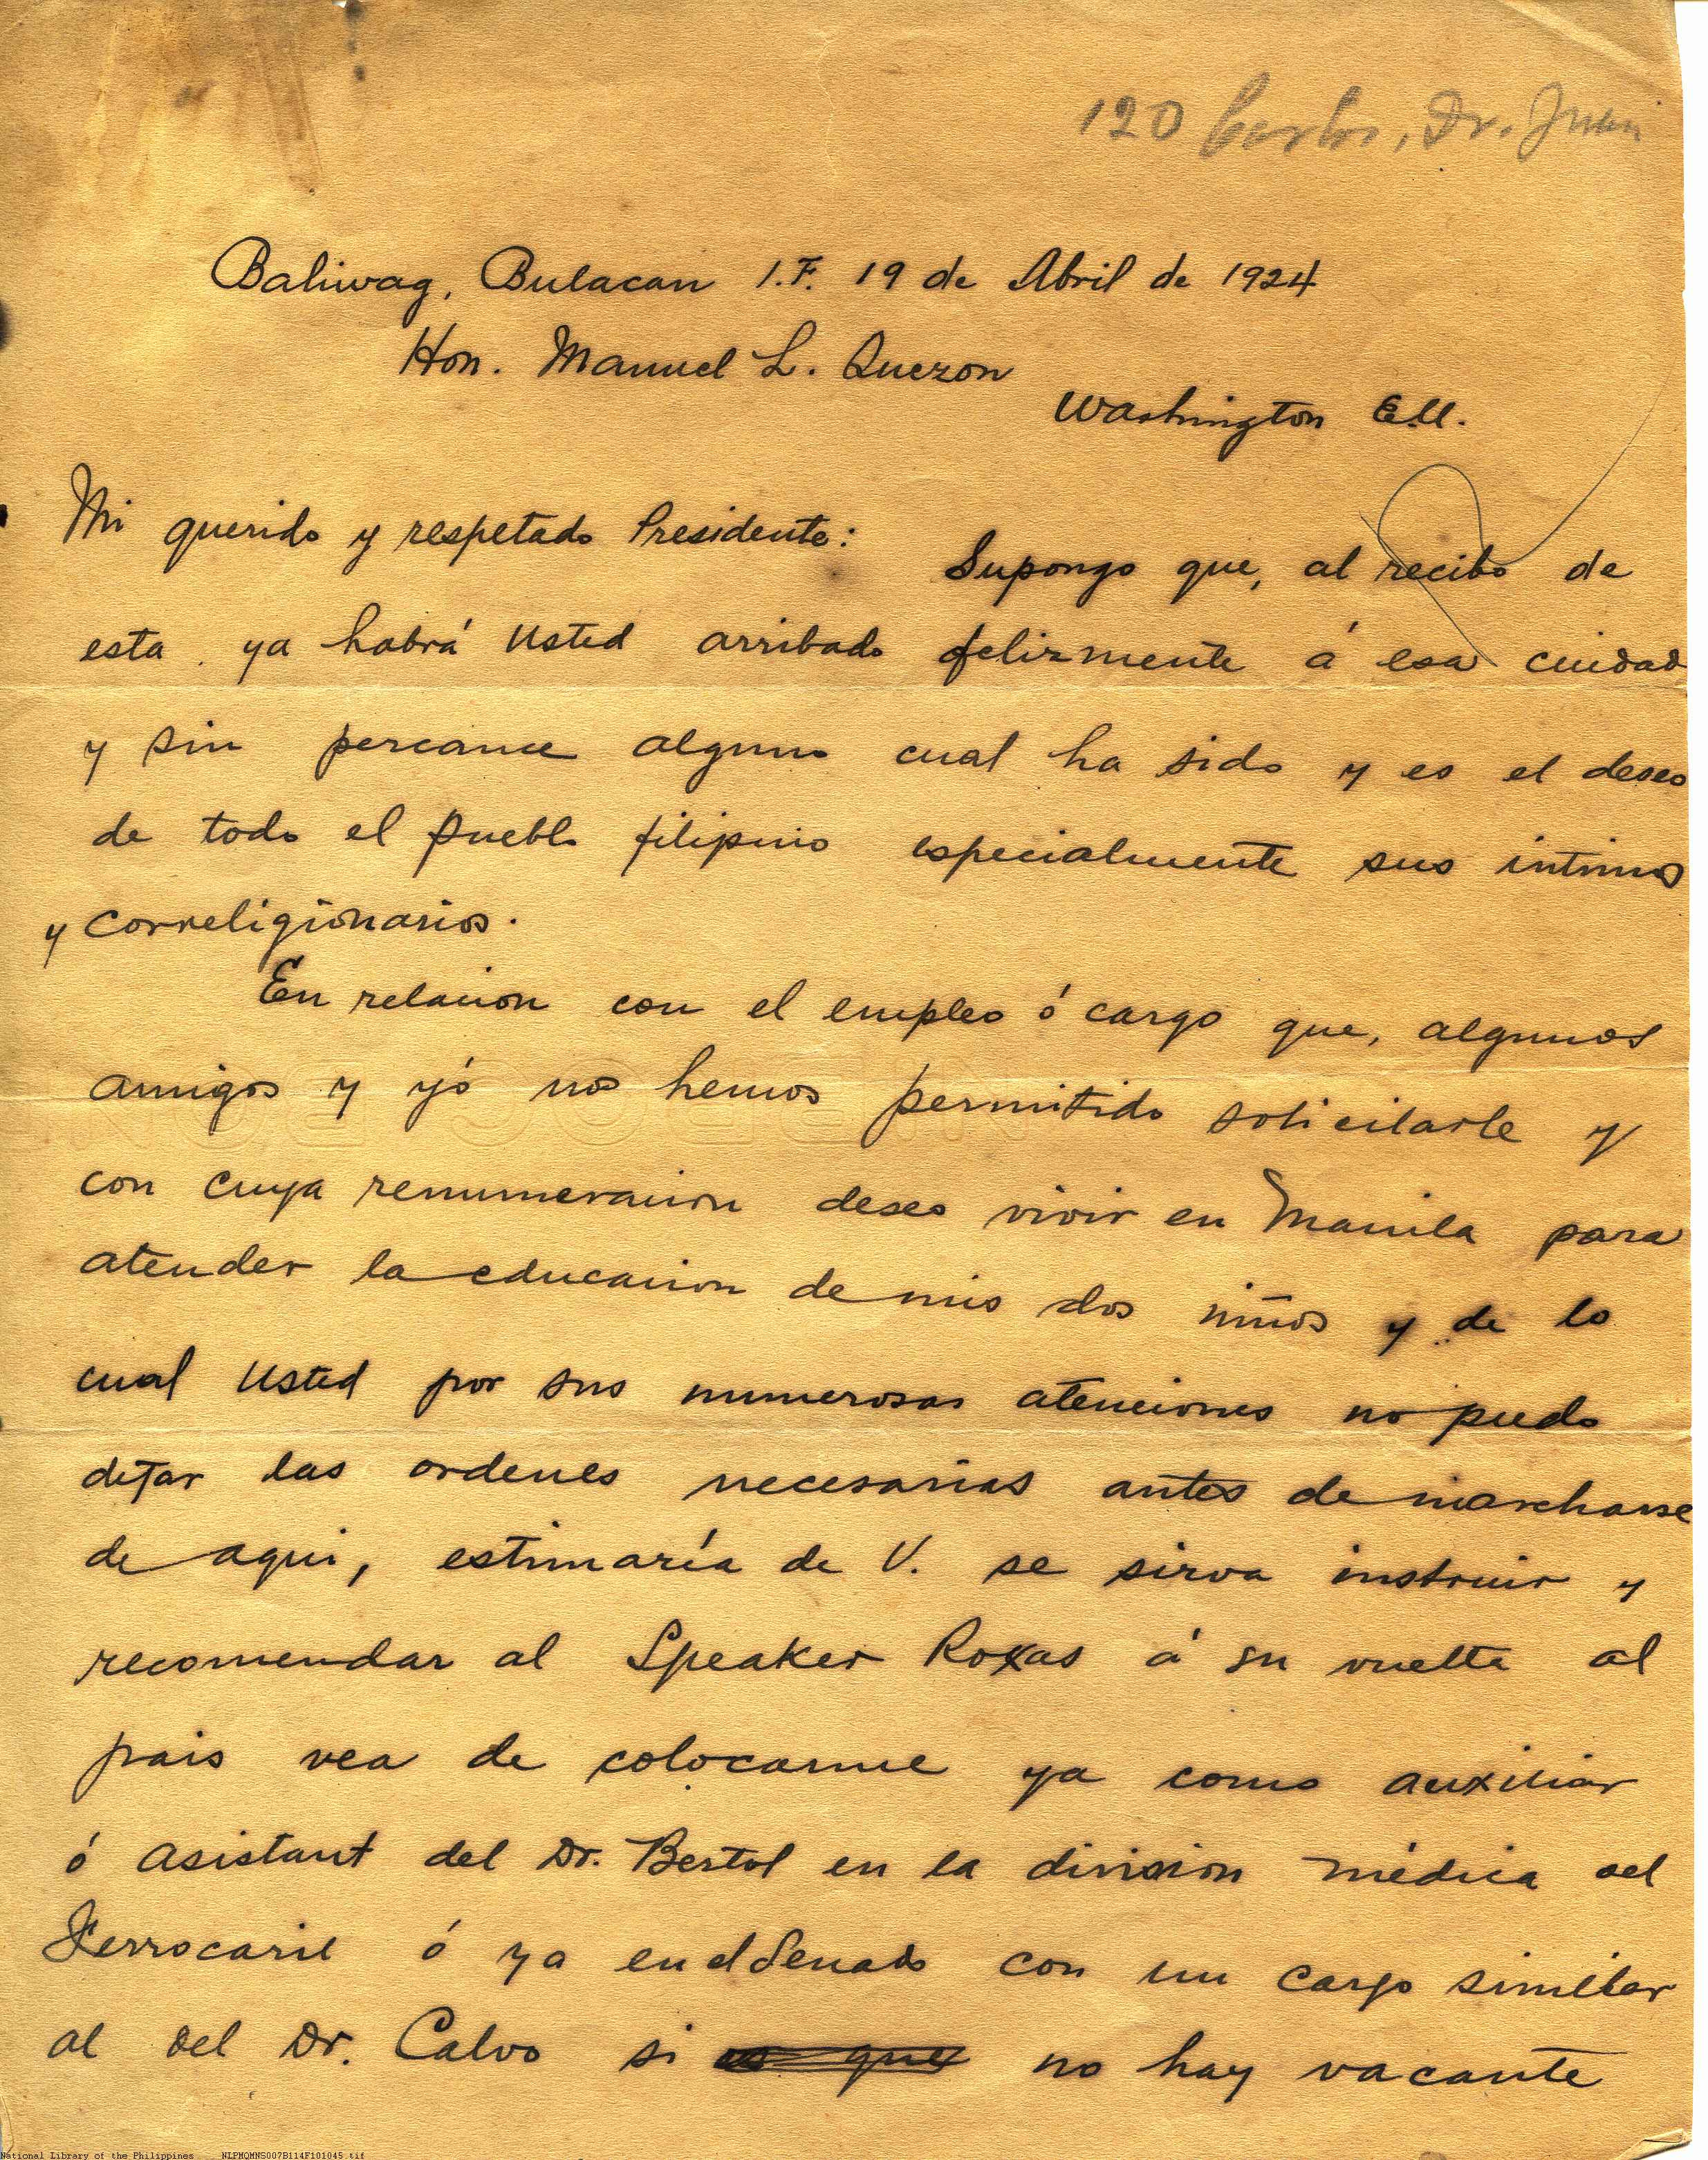 120 , Dr. Juan
Baliwag, Bulacan I.F. 19 de Abril de 1924
Hon. Manuel L. Quezon
Washington E.U.
Mi querido y respetado Presidente:
Supongo que, al recibo de
esta, ya habrá Usted arribado felizmente á esa cuidad
y sin percance alguno cual ha sido y es el deseo
de todo el pueblo filipino especialmente sus intimos
y correligionarios.
En relacion con el empleo ó cargo que, algunos
amigos y yó nos hemos permitido solicitarle y
con cuya renumeracion deseo vivir en Manila para
atender la educacion de mis dos niños y de lo
cual Usted por sus numerosas atenciones no pudo
dejar las ordenes necesarias antes de marcharse
de aqui, estimaría de V. se sirva instruir y
recomendar al Speaker Roxas á su vuelta al
pais vea de colocarme ya como auxiliar
ó asistant del Dr. Bertol en la division médica del
Ferrocaril ó ya en el Senado con un cargo similar
al del Dr. Calvo si es que no hay vacante
National Library of the Philippines NLPMQMNS007B114F101045.tif